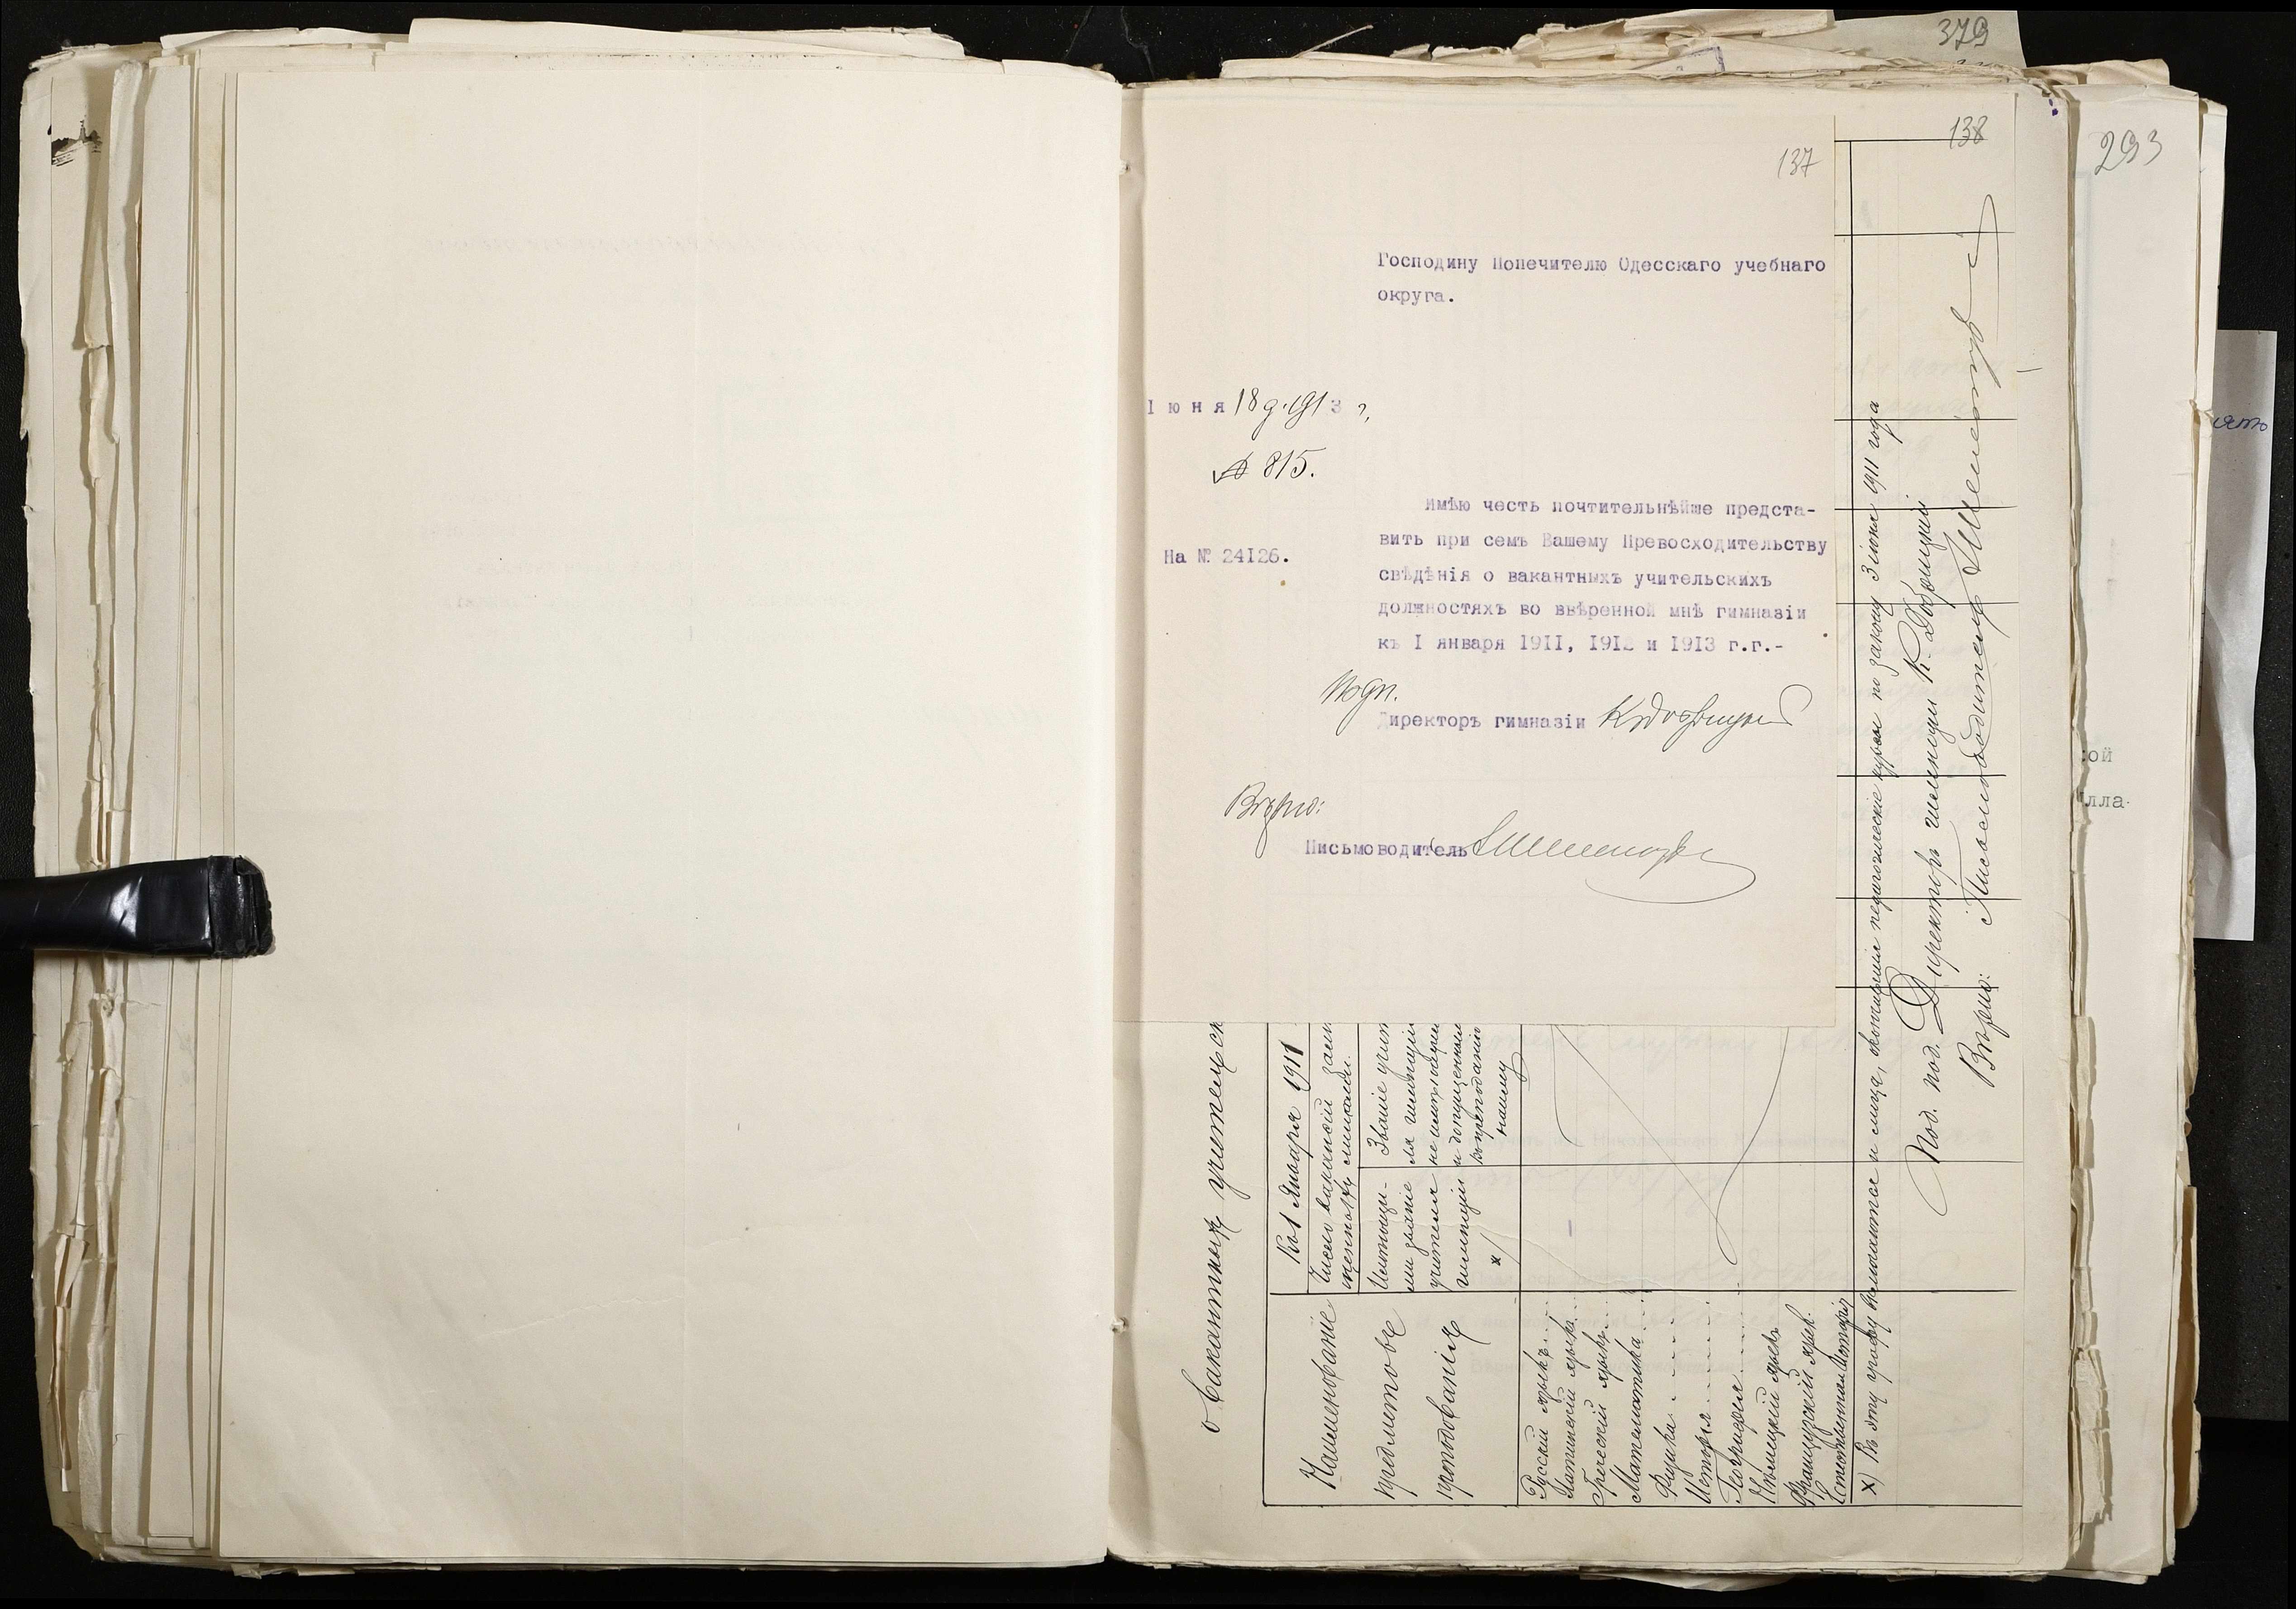 379
138
293
137
Господину Попечителю Одесскаго учебнаго
округа.
Iюня 18 д. 1913 г.
№ 815.
На № 24I26.
Имѣю честь почтительнѣйше предста-
вить при семъ Вашему Превосходительству
свѣдѣнія о вакантныхъ учительскихъ
должностяхъ во ввѣренной мнѣ гимназіи
къ I января 19II, 191 и 19I3 г.г.-
Подп.
Директоръ гимназіи К. Добрицкій
Вѣрно:
Письмоводитель
о вакантныхъ учительск
Къ 1 Января 1911
Число вакансій, заим
Наименованіе
предметовъ
преподаванія
Имѣющи-
ми званіе
учителя
гимназіи
х/
Званіе учит
ля гимназіи
не имѣющи
и допущенными
къ преподаванію
Русскій языкъ
Латинскій языкъ
Греческій языкъ
Математика
Физика
Исторія
Географія
Нѣмецкій языкъ
Французскій язык.
Естественная Исторія
х) Въ эту графу включаются и лица, окончившія педагогическіе курсы по закону 3 іюня 1911 года
Под. под. Директоръ гимназіи К. Добрицкій
Вѣрно: Письмоводитель
ой
лла-
ять